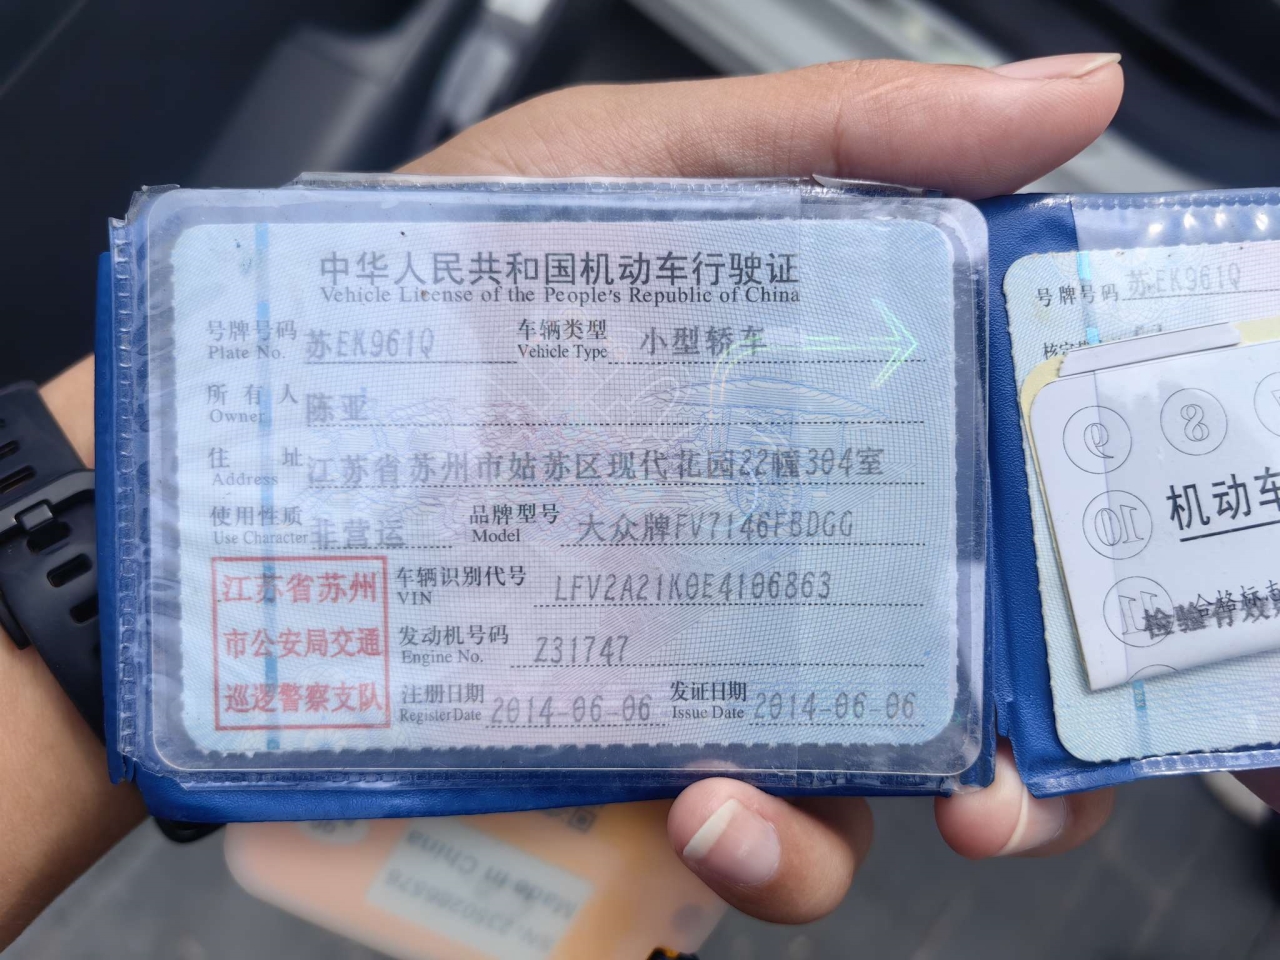 中华人民共和国机动车行驶证
Vehicle License of the People's Republic of China
号牌号码 苏EK961Q 车辆类型 小型轿车
Plate No. Vehicle Type
所有人 陈亚
Owner
住址 江苏省苏州市姑苏区现代花园22幢304室
Address
使用性质 非营运 品牌型号 大众牌FV7146FBDGG
Use Character Model
江苏省苏州
市公安局交通
巡逻警察支队
车辆识别代号 LFV2A21K0E4106863
VIN
发动机号码 Z31747
Engine No.
注册日期 2014-06-06 发证日期 2014-06-06
Register Date Issue Date
号牌号码 苏EK961Q
核定
9 8 7
10
机动车
11
检验有效
合格标志
Made in China